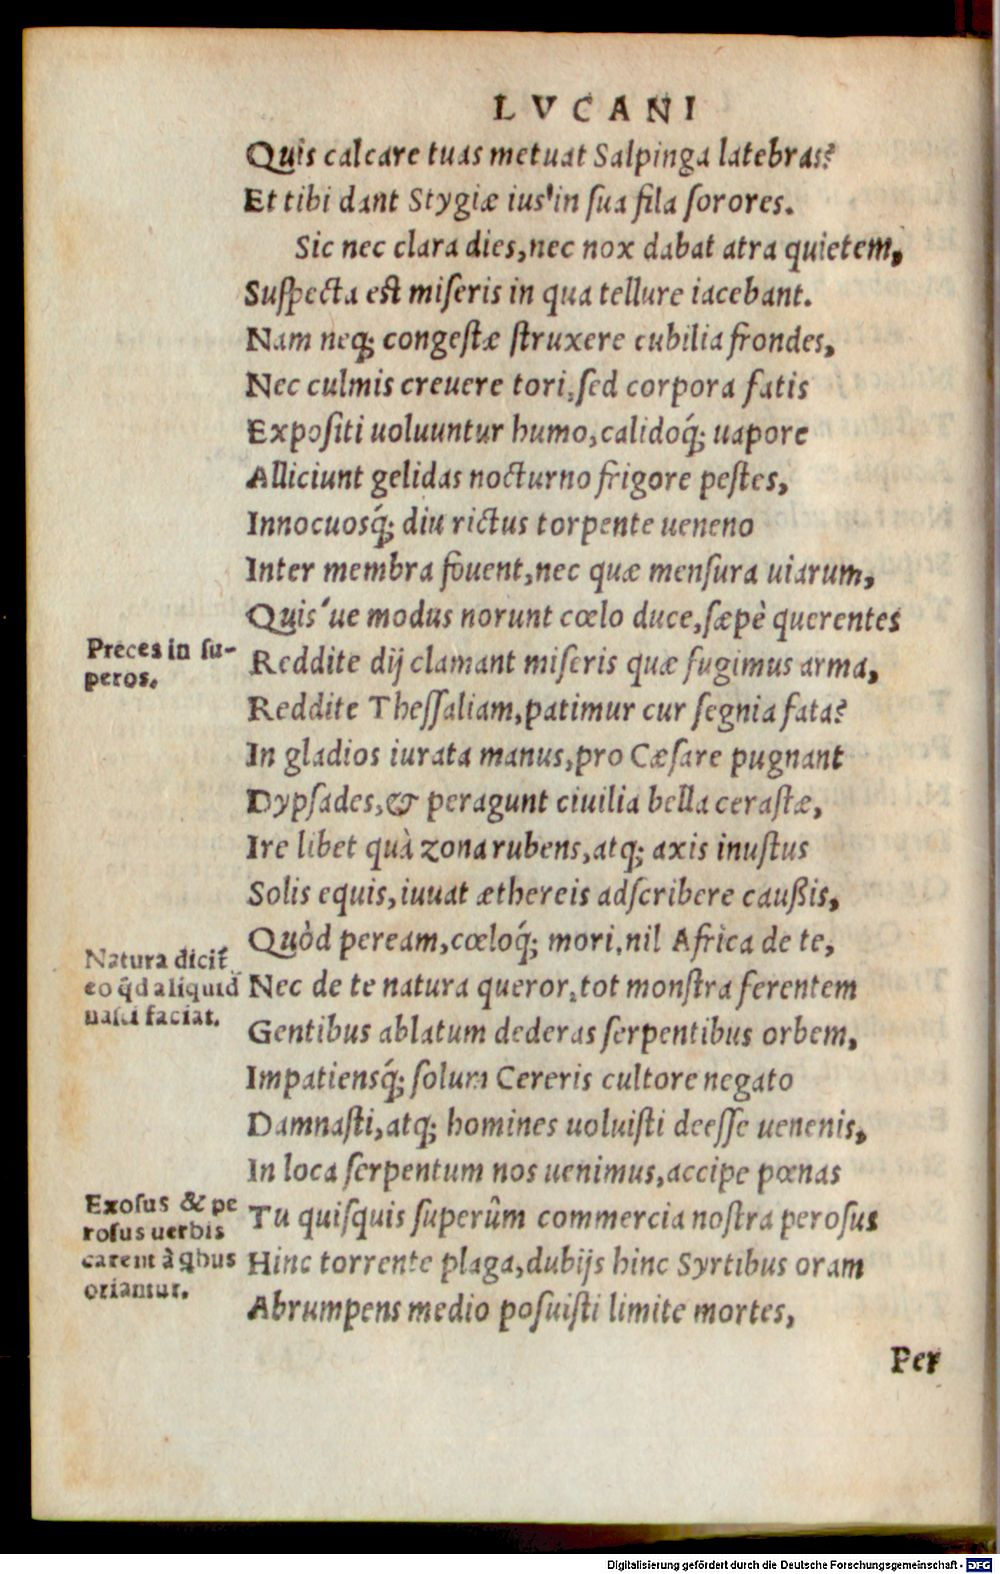 LVCANI
Quis calcare tuas metuat Salpinga latebras?
Et tibi dant Stygiæ ius in ſua fila ſorores.
Sic nec clara dies, nec nox dabat atra quietem,
Suſpecta eſt miſeris in qua tellure iacebant.
Nam neq; congeſtæ ſtruxere cubilia frondes,
Nec culmis creuere tori, ſed corpora fatis
Expoſiti uoluuntur humo, calidoq́; uapore
Alliciunt gelidas nocturno frigore peſtes,
Innocuosq́; diu rictus torpente ueneno
Inter membra fouent, nec quæ menſura uiarum,
Quis'ue modus norunt cœlo duce, ſæpè querentes
Preces in ſu-
peros.
Reddite dij clamant miſeris quæ fugimus arma,
Reddite Theſſaliam, patimur cur ſegnia fata?
In gladios iurata manus, pro Cæſare pugnant
Dypſades, & peragunt ciuilia bella ceraſtæ,
Ire libet quà zona rubens, atq; axis inuſtus
Solis equis, iuuat æthereis adſcribere cauſsis,
Quòd peream, cœloq́; mori, nil Africa de te,
Natura dicit̃
eo q̃d aliquid
naſci faciat.
Nec de te natura queror, tot monſtra ferentem
Gentibus ablatum dederas ſerpentibus orbem,
Impatiensq́; ſolum Cereris cultore negato
Damnaſti, atq; homines uoluiſti deeſſe uenenis,
In loca ſerpentum nos uenimus, accipe pœnas
Exoſus & pe
roſus uerbis
carent à q̃bus
oriantur.
Tu quiſquis ſuperûm commercia noſtra peroſus
Hinc torrente plaga, dubijs hinc Syrtibus oram
Abrumpens medio poſuiſti limite mortes,
Per
Digitalisierung gefördert durch die Deutsche Forschungsgemeinschaft - DFG